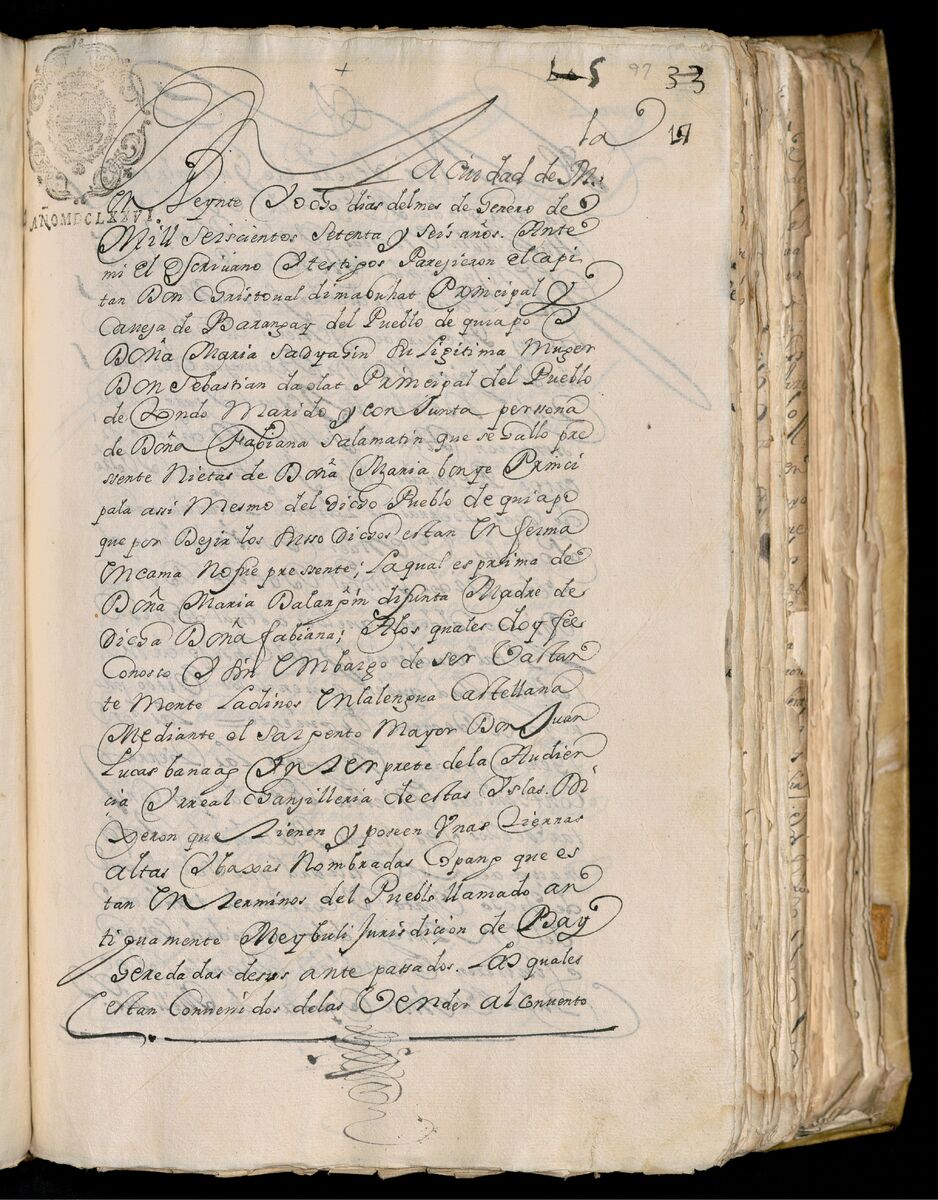 +
5 97 33
la 19
En La Ciudad de Mla
En Veynte Y ocho dias del mes de henero de
AÑO MDCLXXVI.
Mill Seiscientos Setenta y Seis años. Ante
mi el Escrivano Y testigos Parejieron el capi
tan Don Cristoual dimabuhat Principal y
Caveja de Barangay del Pueblo de quiapo Y
Doña Maria Sadyagin Su Ligitima Muger
Don Sebastian daplat Principal del Pueblo
de tondo Marido y con Junta perssona
de Doña Fabiana Salamatin que se hallo pre
ssente Nietas de Doña Maria bonge Princi
pala assi Mesmo del dicho Pueblo de quiapo
que por Dejir los Susso Dichos estan Enferma
En cama No fue pressente; La qual es prima de
Doña Maria Dalangin difunta Madre de
Dicha Doña fabiana; A los quales doy fee
Conosco Y Sin Embargo de ser Vastan
te Mente Ladinos En la lengua Castellana
Mediante el Sargento Mayor Don Juan
Lucas banaag Ynterprete de la Audien
cia Y rreal Chanjilleria de estas Yslas. Di
xeron que tienen y poseen Vnas tierras
altas Y baxas Nombradas Opang que es
tan En terminos del Pueblo llamado an
tiguamente Meybuli Jurisdicion de Bay
heredadas de sus ante passados. Las quales
estan Convenidos de las Vender al convento